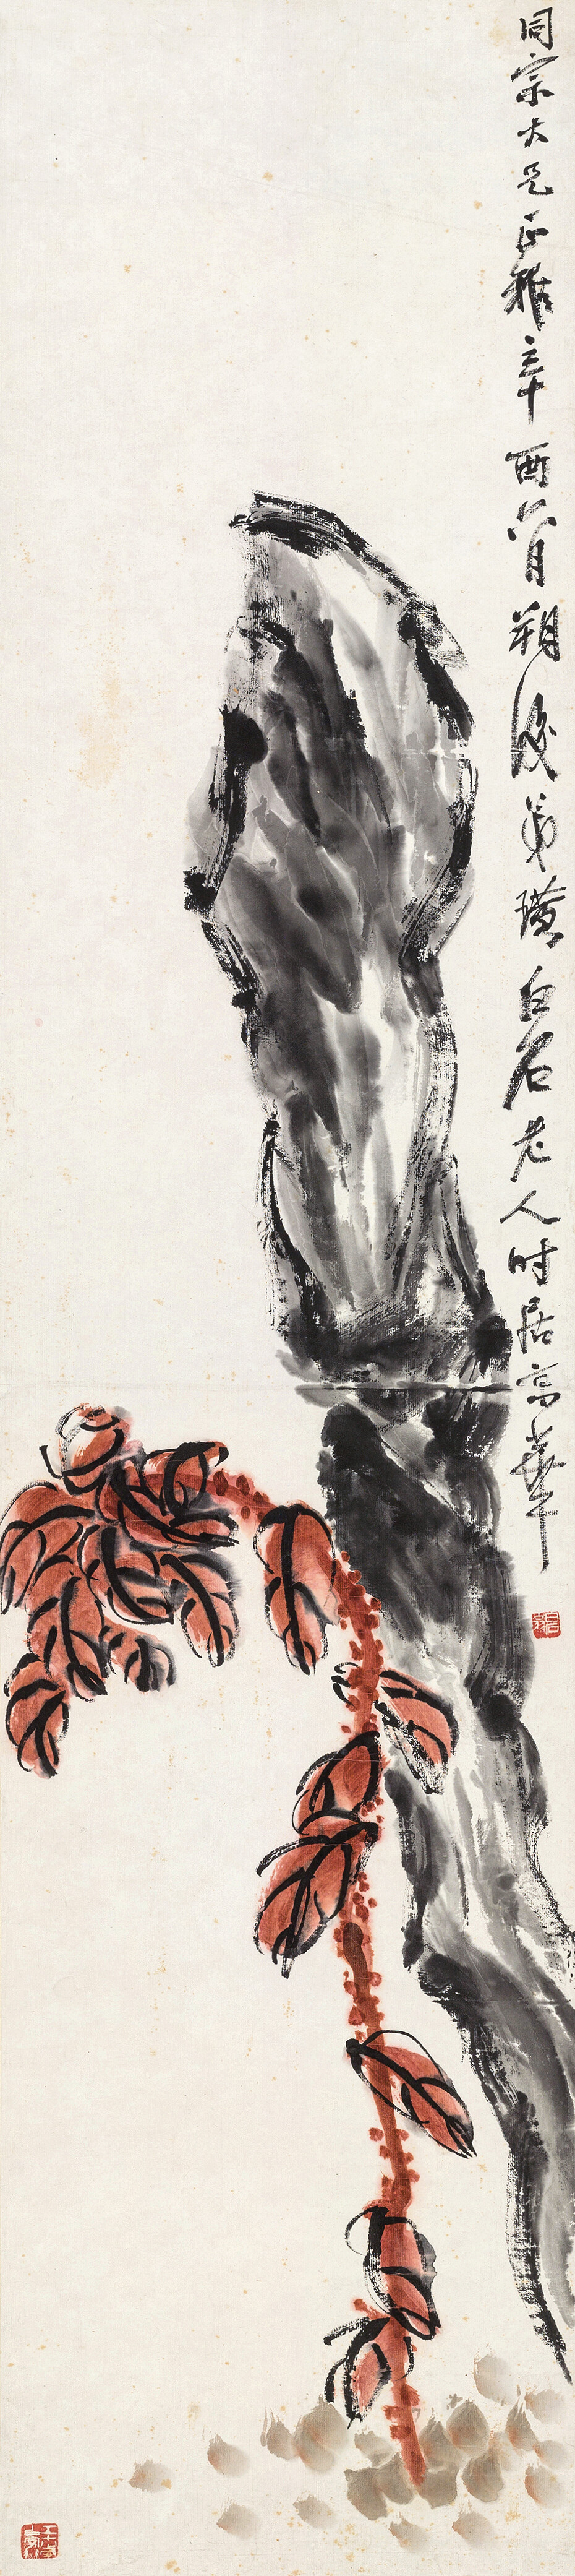 同宗大兄正雅辛酉六月朔後弟璜白石老人时居京华